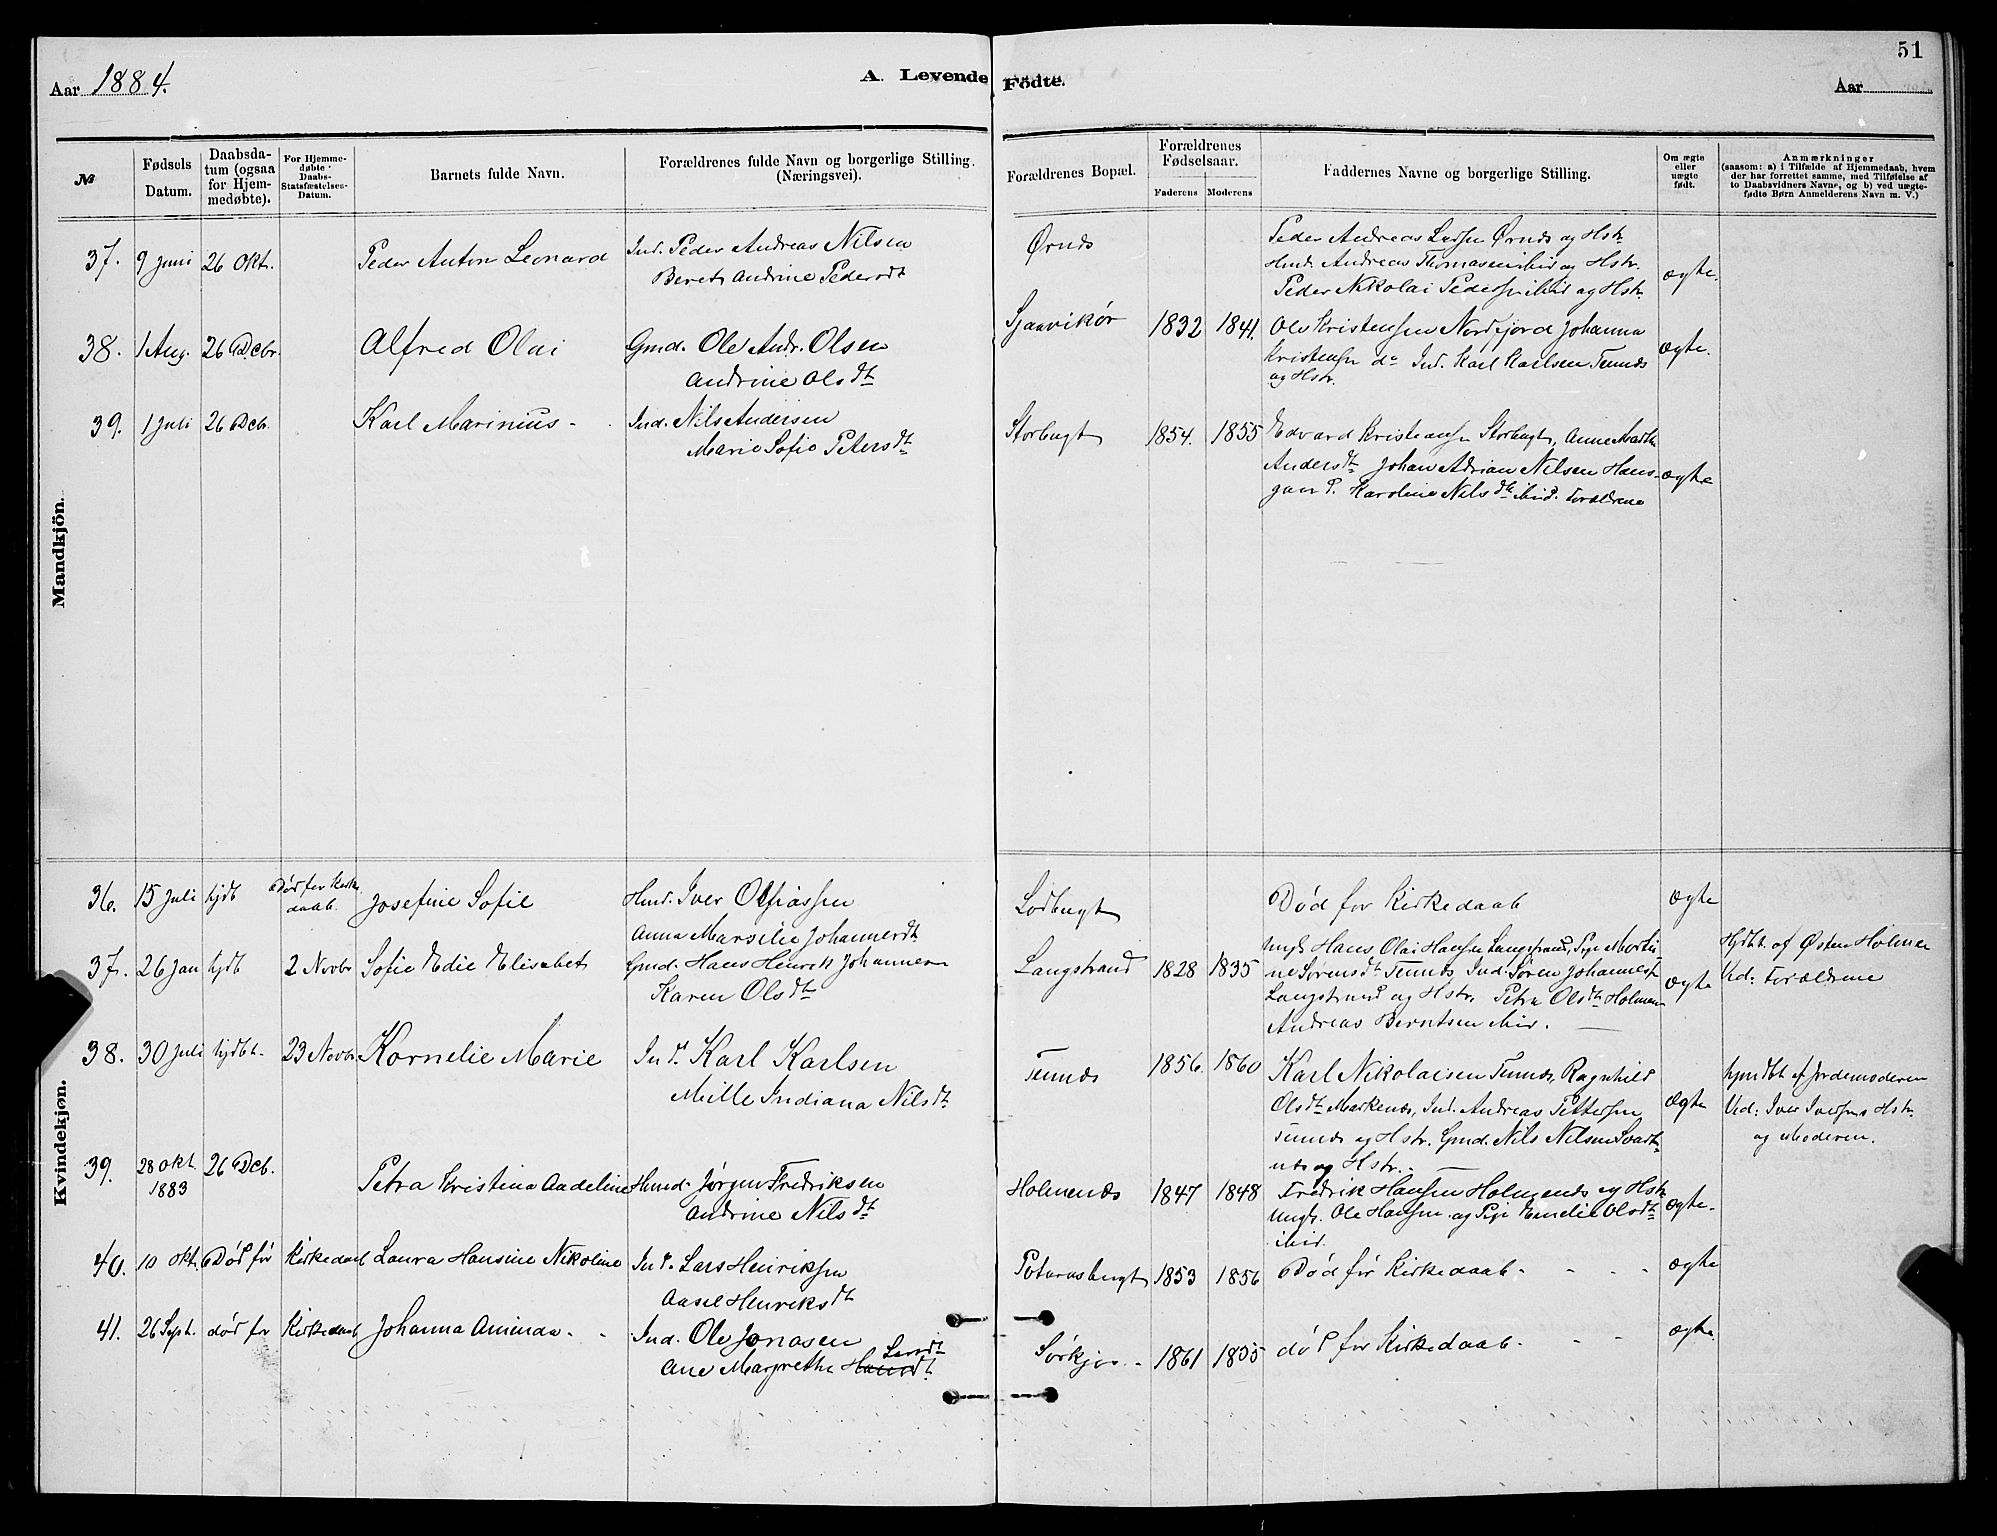 Aar 1884.
A. Levende Fødte.
Aar
51
№
Fødsels Datum.
Daabsdatum (ogsaa for Hjemmedøbte).
For Hjemmedøbte Daabs-Statsfæstelses-Datum.
Barnets fulde Navn.
Forældrenes fulde Navn og borgerlige Stilling. (Næringsvei).
Forældrenes Bopæl.
Forældrenes Fødselsaar.
Faderens Moderens
Faddernes Navne og borgerlige Stilling.
Om ægte eller uægte født.
Anmærkninger
(saasom: a) i Tilfælde af Hjemmedaab, hvem
der har forrettet samme, med Tilføielse af
to Daabsvidners Navne, og b) ved uægte-
fødte Børn Anmelderens Navn m. V.)
Mandkjön.
37. 9 Juni 26 Okt. Peder Anton Leonard Ind. Peder Andreas Nilsen
Beret Andrine Pedersdt
Ørnes
Peder Andreas Larsen Ørnes og Hstr
Hmd. Andreas Thomasen ibid og Hstr.
Peder Nikolai Pedersen ibid og Hstr.
ægte.
38. 1 Aug. 26 Decbr. Alfred Olai Gmd. Ole Andr. Olsen
Andrine Olsdt
Sjaavikør 1832 1841.
Ole Kristensen Nordfjord Johanna
Kristensen do Ind. Karl Karlsen Tennes
og Hstr.
ægte.
39. 1 Juli 26 Decb. Karl Marinius - Ind. Nils Andersen
Marie Sofie Petersdt
Storbugt 1854. 1855
Edvard Kristiansen Storbugt, Anne Martha
Andersdt Johan Adrian Nilsen Hans-
Karoline Nilsdt ibid. Forældrene
ægte
Kvindekjøn.
36. 15 Juli hjdt Død før Kirke
daab. Josefine Sofie Hmd. Iver Olfiassen
Anna Marselie Johannesdt
Lodbugt
Død for Kirkedaab
ægte
37. 26 Jan hjdt 2 Novbr Sofie Edie Elisabet Gmd. Hans Henrik Johannesen
Karen Olsdt
Langstrand 1828 1835
Ungk. Hans Olai Hansen Langstrand, Pige Marti-
ne Sørensdt Tennes Ind. Søren Johannes
Langstrand og Hstr. Petra Olsdt Holmen
Andreas Berntsen ibid.
ægte
Hjdbt. af Østen Holmen
Vid: Forældrene
38. 30 Juli hjdbt. 23 Novbr. Kornelie Marie Ind. Karl Karlsen
Mille Indiana Nilsdt
Tennes 1856. 1860
Karl Nikolaisen Tennes, Ragnhild
Olsdt Markenes, Ind. Andreas Pettersen
Tennes og Hstr. Gmd. Nils Nilsen Svart-
nes og Hstr.
ægte
hjmdbt af Jordemoderen
Vid: Iver Iversens Hstr.
og Moderen.
39. 28 Okt.
1883 26 Dcb. Petra Kristina Aadeline Hmd. Jørgen Fredriksen
Andrine Nilsdt
Holmenes 1847 1848
Fredrik Hansen Holmenes og Hstr
Ungk. Ole Hansen og Pige Emelie Olsdt
ibid.
ægte.
40. 10 Okt. Død før Kirkedaab Laura Hansine Nikoline Ind. Lars Henriksen
Aasel Henriksdt
Potarasbugt 1853 1856
Død før Kirkedaab - - - -
ægte
41. 26 Sept. død før Kirkedaab Johanna Aminda - - Ind. Ole Jonasen
Ane Margrethe Larsdt
Sørkjos - 1861 1855
død før Kirkedaab. - - -
ægte.